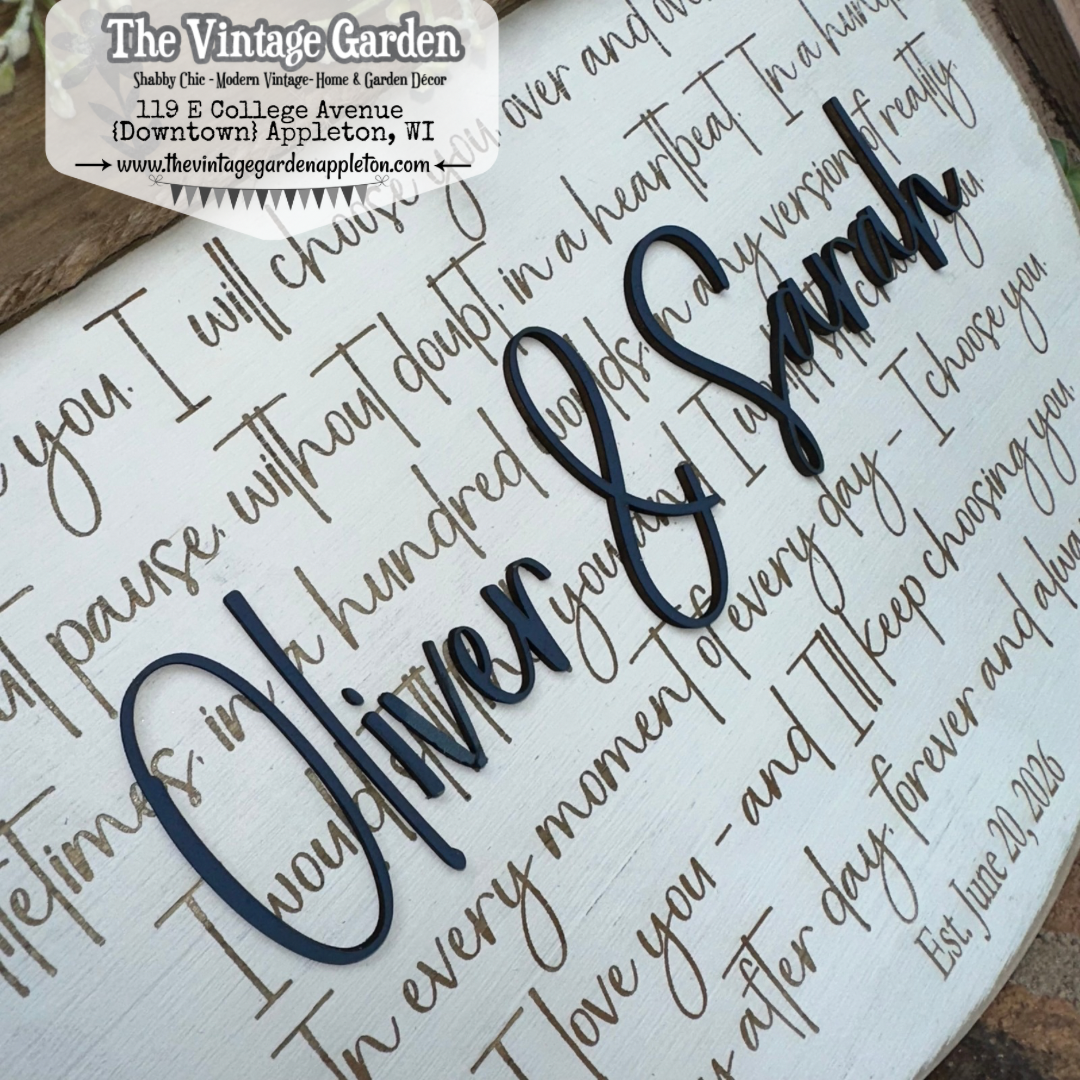 The Vintage Garden
Shabby Chic - Modern Vintage- Home & Garden Décor
119 E College Avenue
{Downtown} Appleton, WI
www.thevintagegardenappleton.com
you. I will choose you, over and over
pause, without doubt, in a heartbeat. In a
in a hundred worlds, in any version of reality,
I would you and I would choose you.
In every moment of every day - I choose you.
I love you - and I'll keep choosing you,
after day, forever and
Oliver & Sarah
Est. June 20, 2026